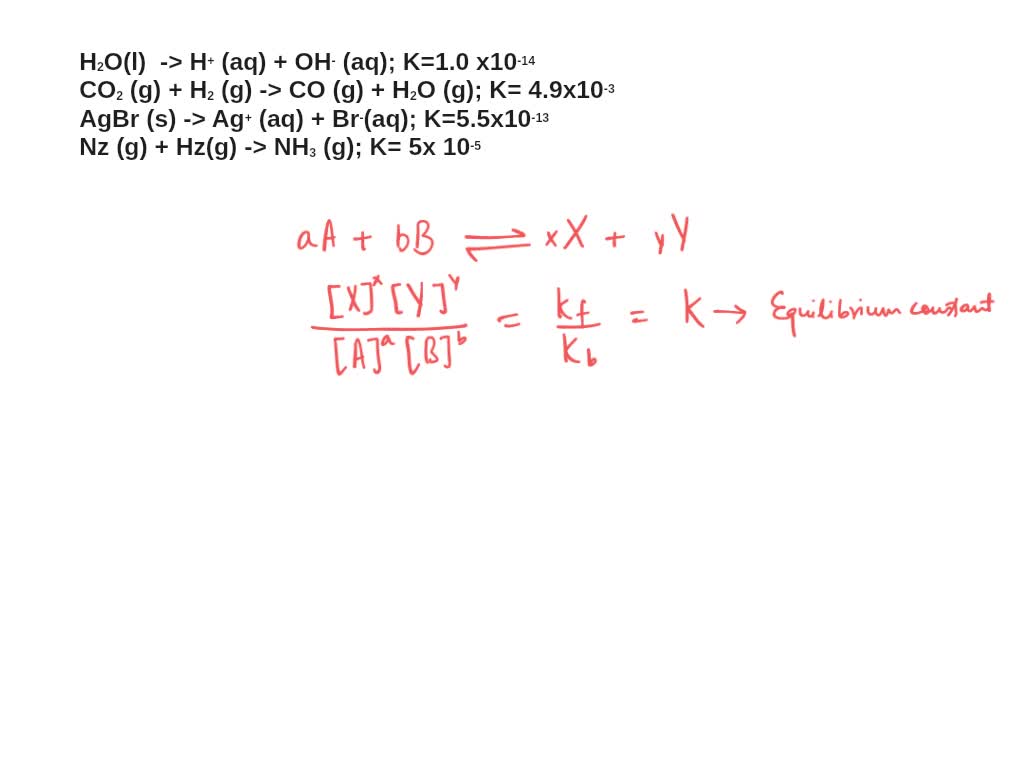 H₂O(l) -> H⁺ (aq) + OH⁻ (aq); K=1.0 x10⁻¹⁴
CO₂ (g) + H₂ (g) -> CO (g) + H₂O (g); K= 4.9x10⁻³
AgBr (s) -> Ag⁺ (aq) + Br⁻(aq); K=5.5x10⁻¹³
Nz (g) + Hz(g) -> NH₃ (g); K= 5x 10⁻⁵
aA + bB ⇌ xX + yY
[X]ˣ [Y]ʸ
= kf = K → Equilibrium constant
[A]ᵃ [B]ᵇ kb